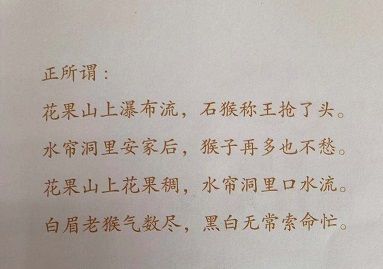 正所谓：
花果山上瀑布流，石猴称王抢了头。
水帘洞里安家后，猴子再多也不愁。
花果山上花果稠，水帘洞里口水流。
白眉老猴气数尽，黑白无常索命忙。